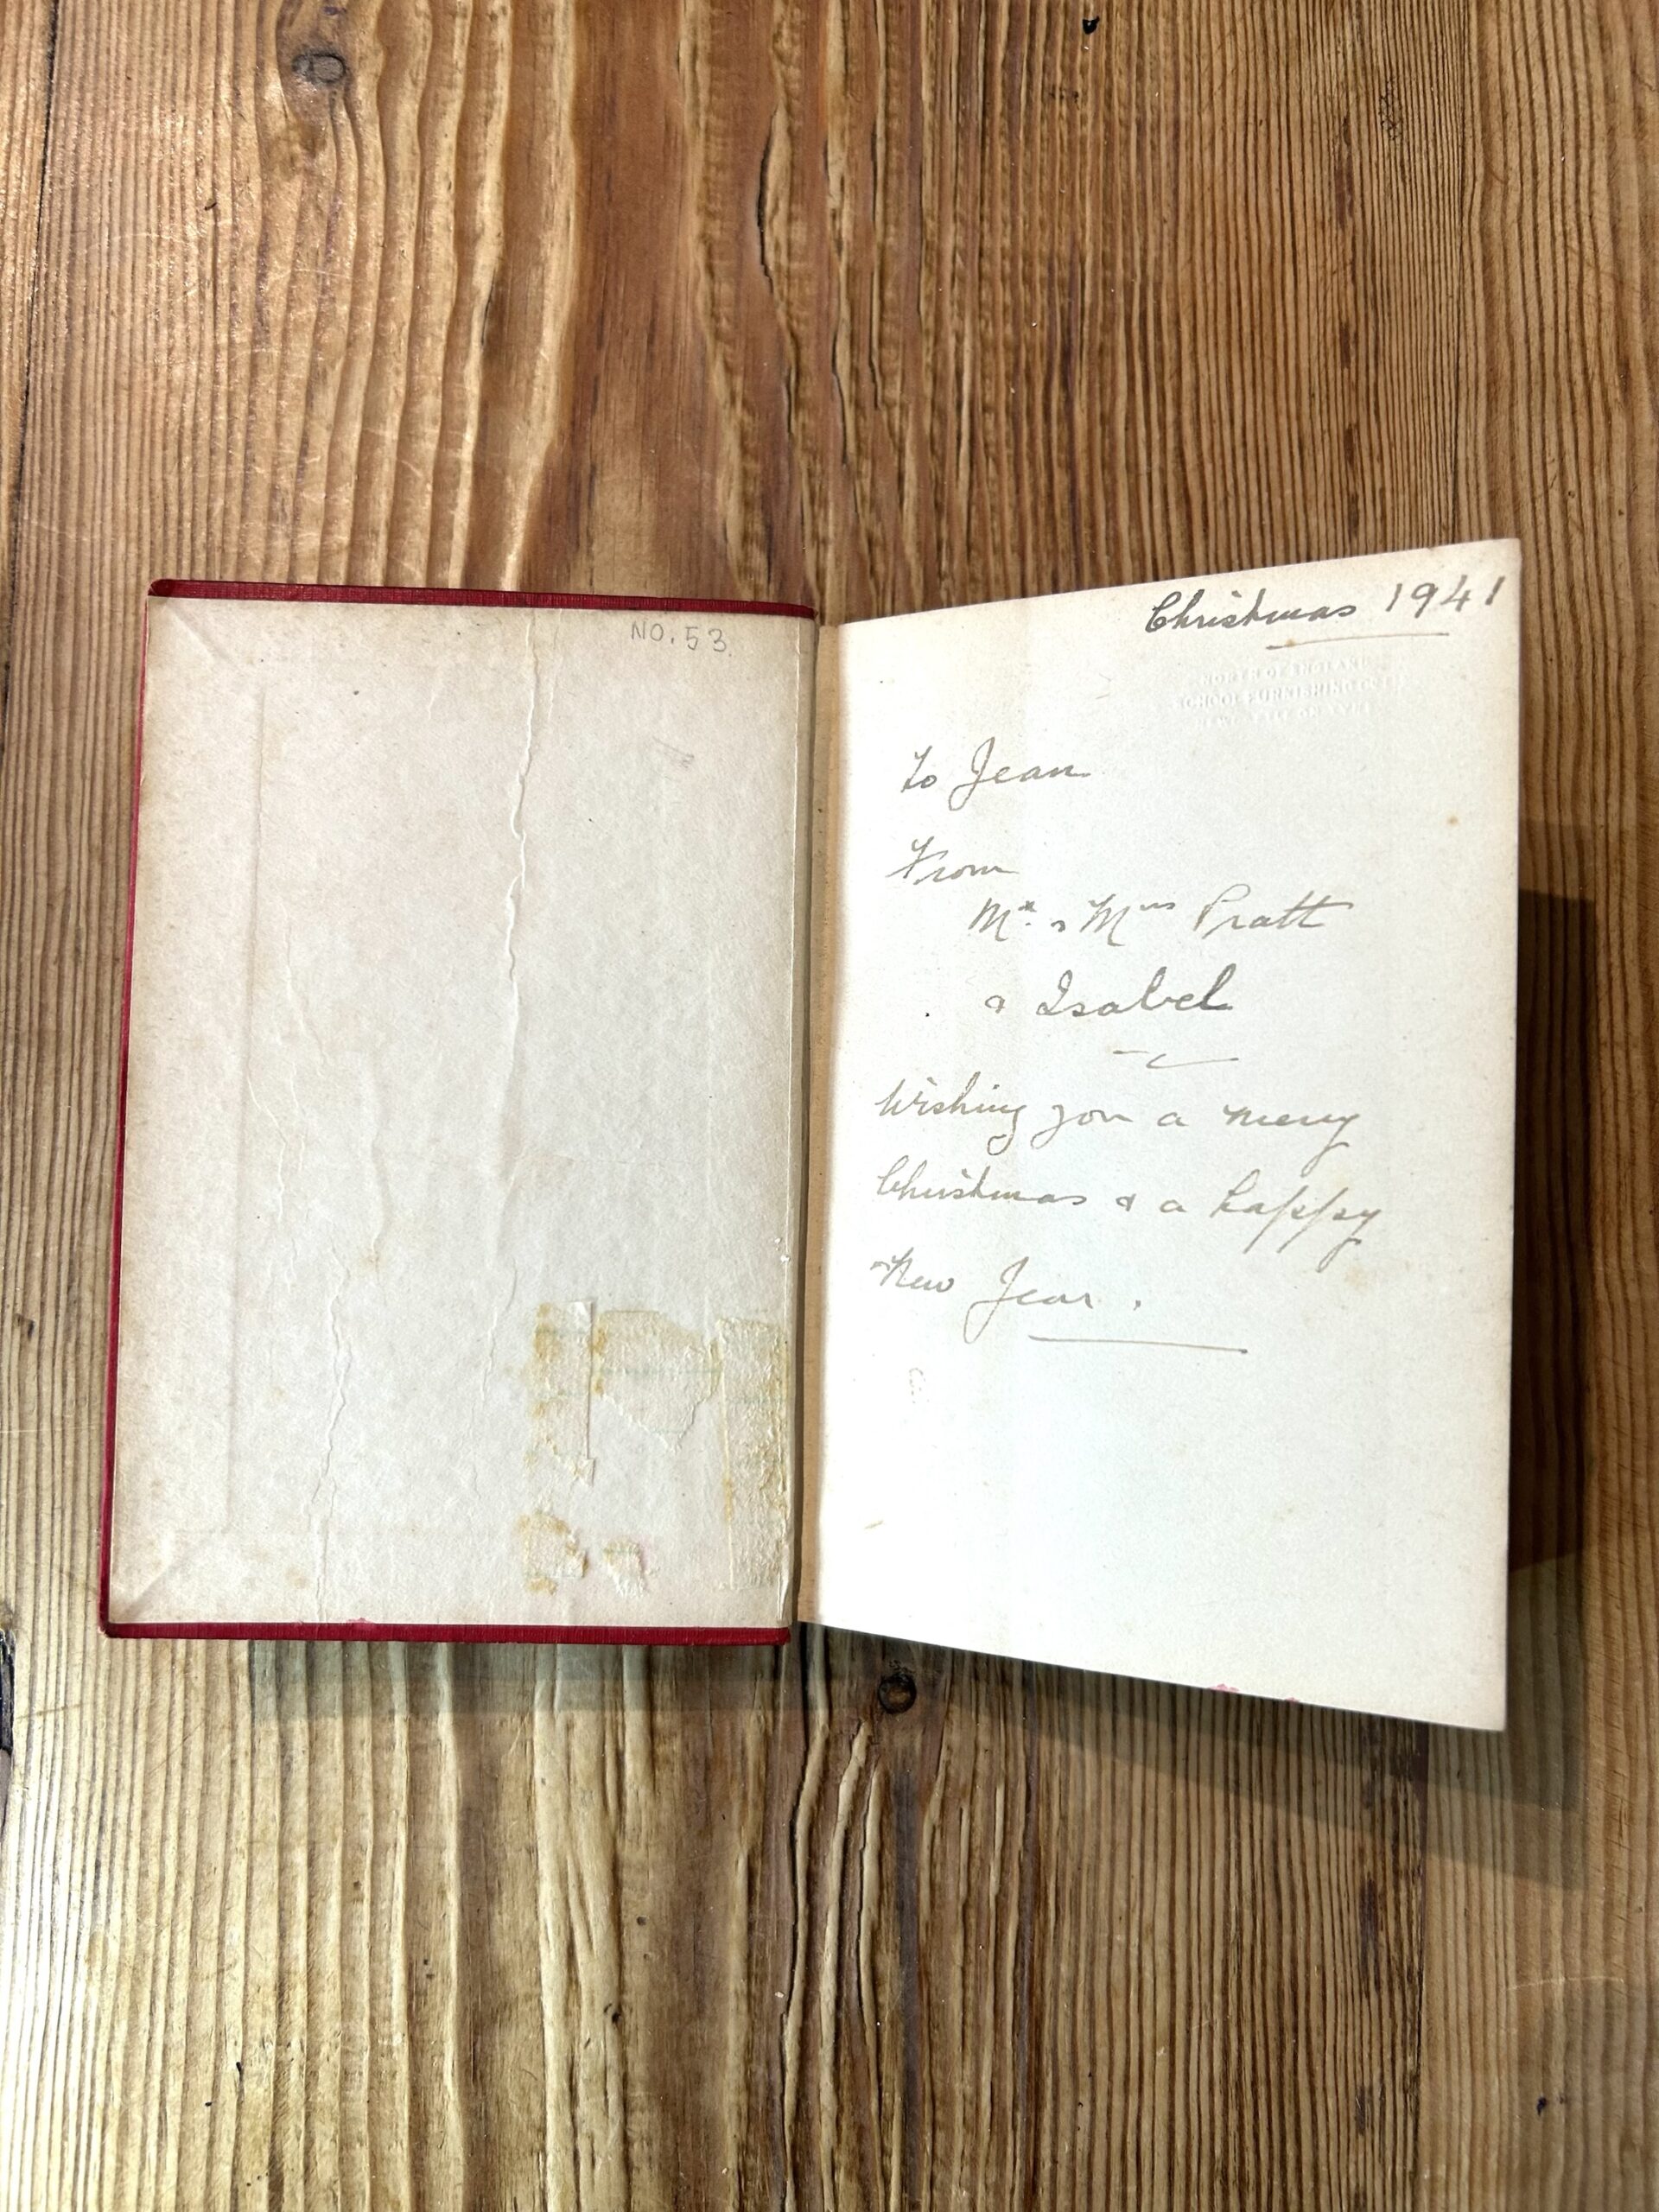 NO. 53.
Christmas 1941
NORTH OF ENGLAND
SCHOOL FURNISHING CO LTD
to Jean
From
Mr. & Mrs Pratt
& Isabel
Wishing you a merry
Christmas & a happy
New Year.